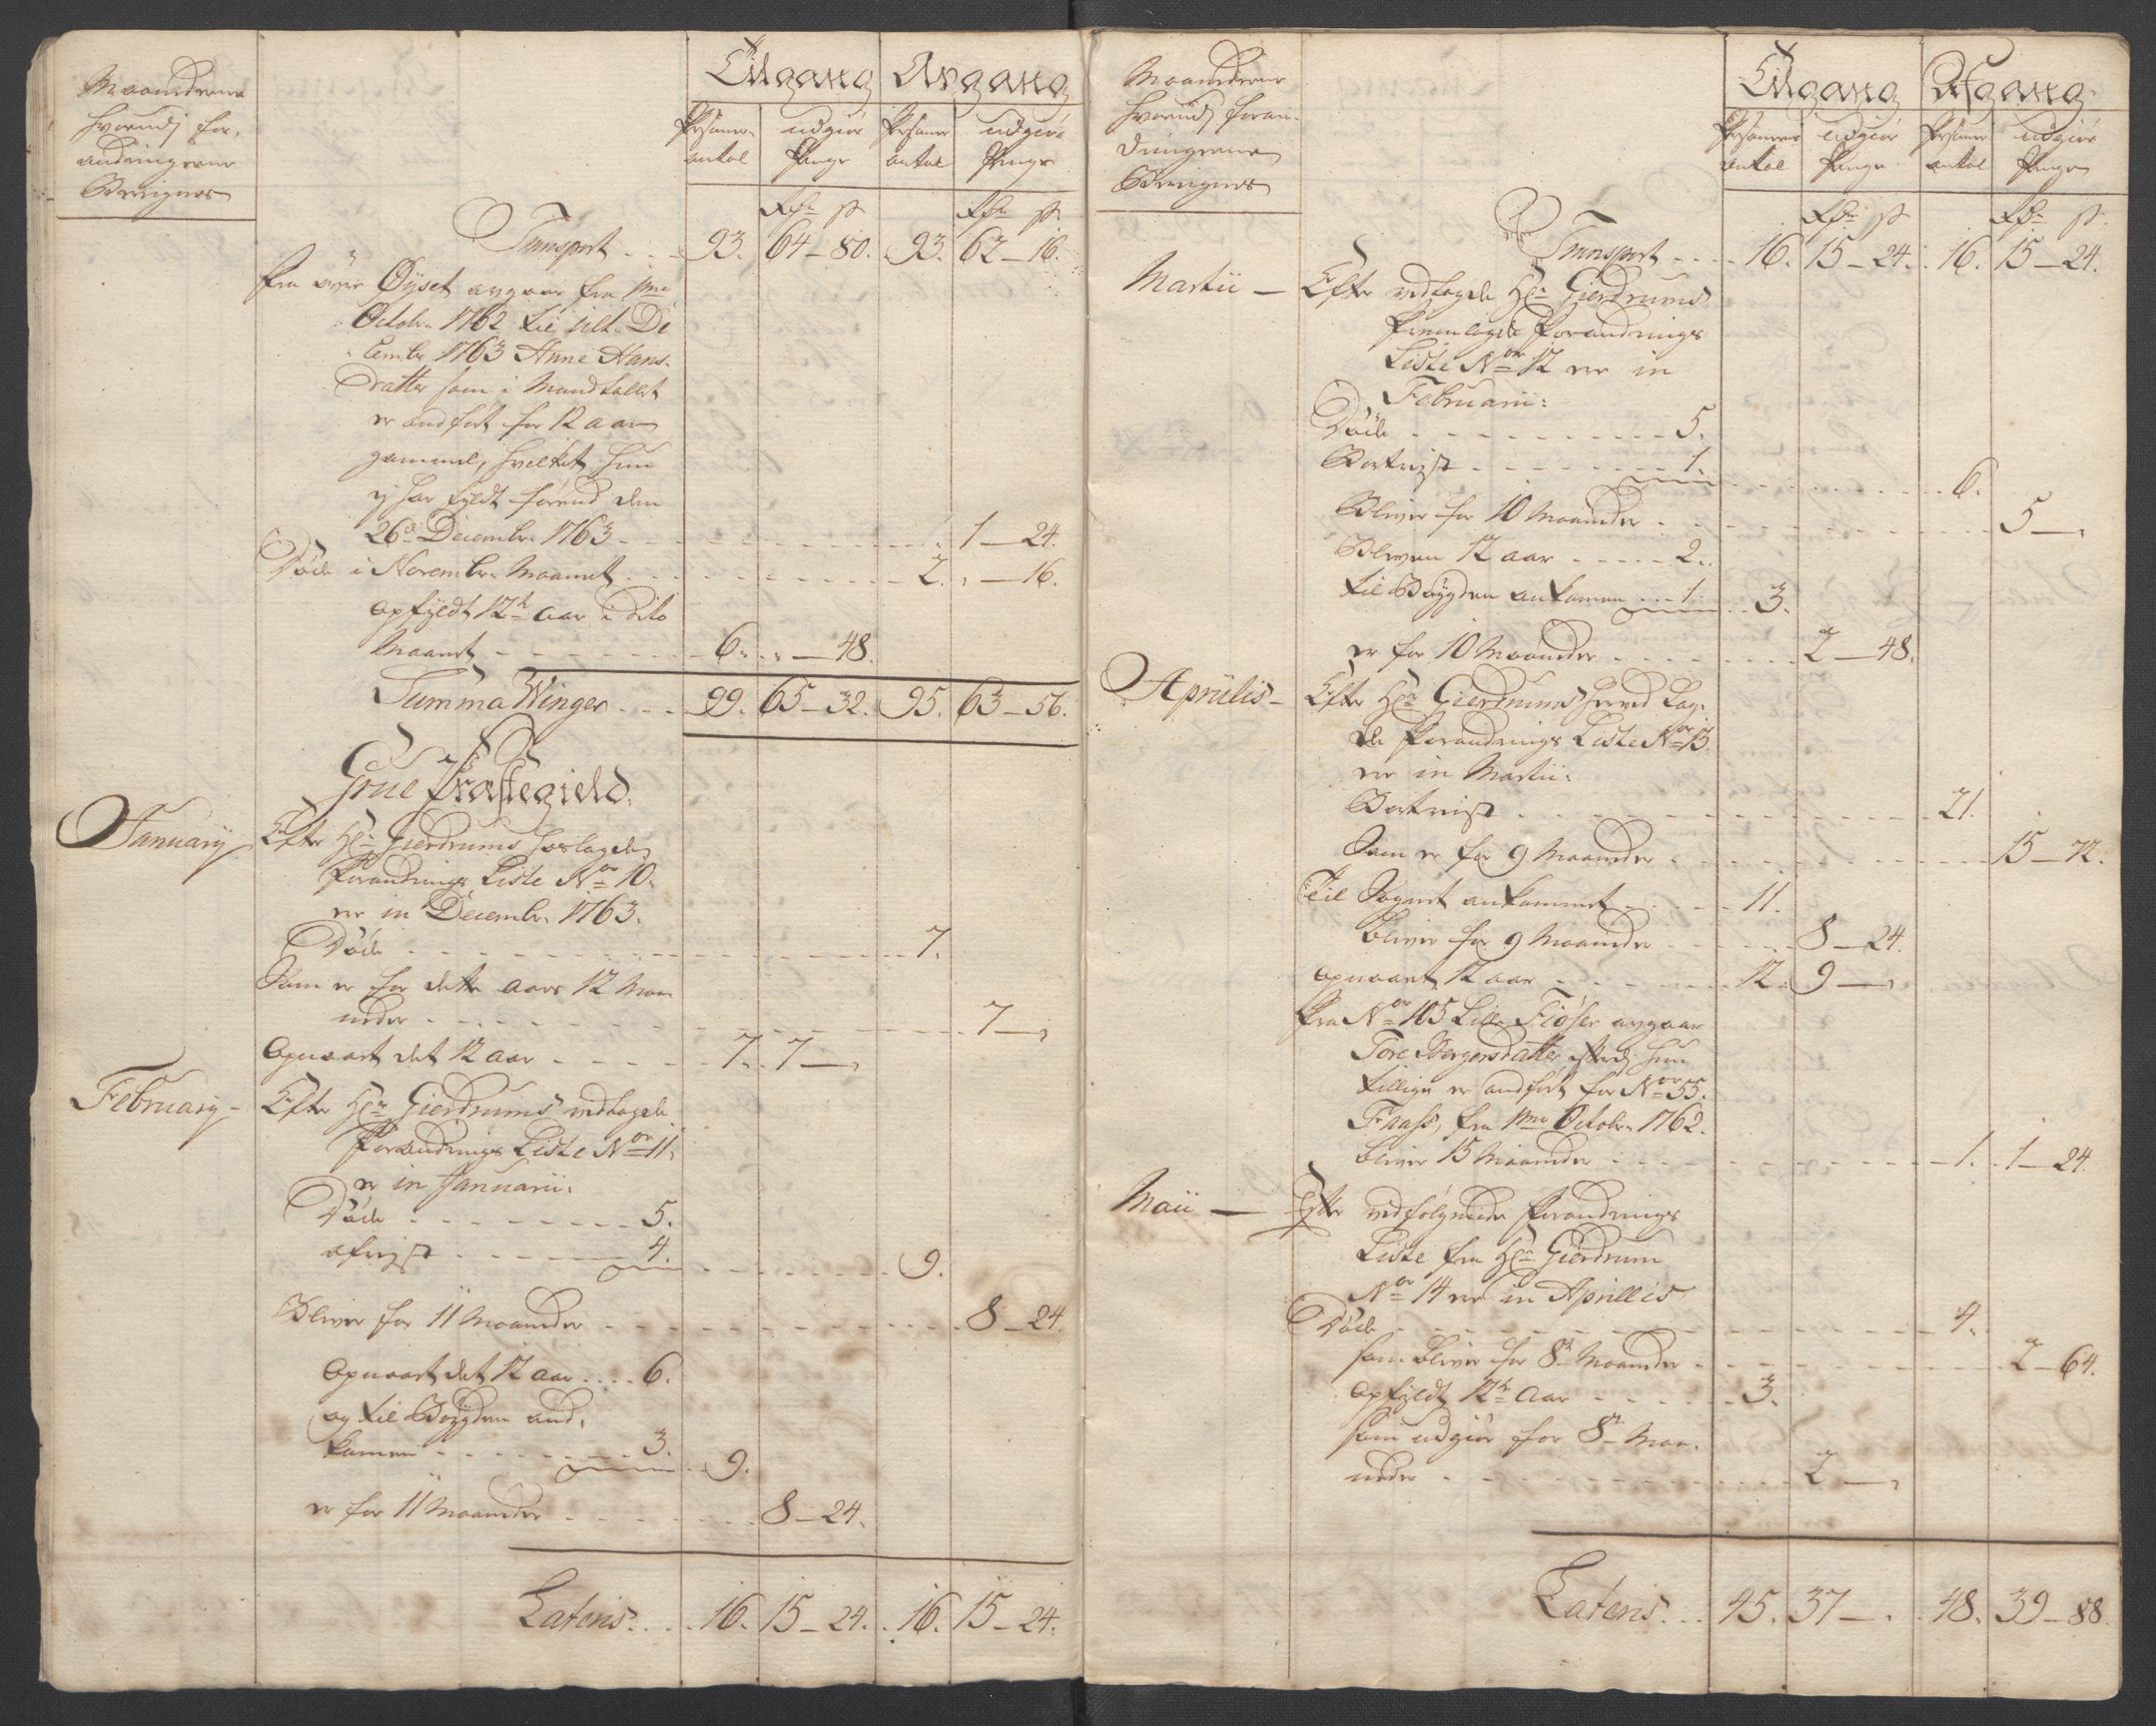 Maanederne
hvorudj for-
andringerne
Berignes
Tilgang Avgang
Persone- udgiør Persone udgiør
antal Penge antal Penge
Rdr ß Rdr ß
Transport - - 93. 64 - 80. 93. 62 - 16.
Fra øvre Øÿset avgaar fra 1me
Octobr 1762 til ult. De
cembr 1763 Anne Hans-
Datter som i Mandtallet
er andført for 12 aar
gammel, hvilket hun
ej har fyldt førend den
26de Decembr 1763 - - - 1 - 24.
Døde i Novembr Maanet - - - 2. " - 16.
opfyldt 12te aar i dito
Maanet - - - 6. " - 48.
Summa Winger - - - 99. 65 - 32. 95. 63 - 56.
Grue Præstegield.
January Efter Hr Gierdrums hoslagde
Forandrings Liste Nor 10.
er in Decembr 1763.
Døde - - - 7.
Som er for dette aars 12 Maa
neder - - - 7 - "
Opnaaet det 12 aar - - - 7. 7 - "
February - Efter Hr Gierdrums vedlagde
Forandrings Liste Nor 11.
er in Januarii.
Døde - - - 5.
afrejst - - - 4. - - - 9.
Bliver for 11 Maaneder - - - 8 - 24.
Opnaaet det 12 aar - - - 6.
og til Bøygden and-
kommen - - - 3. - - 9.
er for 11 Maaneder - - - 8 - 24.
Lateris - - - 16. 15 - 24. 16. 15 - 24.
Maanederne
hvorudj foran-
dringerne
Berignes
Tilgang Afgang
Personer udgiør Persone udgiør
antal Penge antal Penge
Rdr ß Rdr ß
Transport - - - 16. 15 - 24. 16. 15 - 24.
Martii - Efter vedlagde Hr Gierdrums
fremlagde Forandrings
Liste Nor 12 er in
Februarii:
Døde - - - 5.
Bortrejst - - - 1. - - - 6.
Bliver for 10 Maaneder - - - 5 - "
Bleven 12 aar - - - 2.
til Bøygden ankomen - - 1. - - 3.
er for 10 Maaneder - - - 2 - 48.
Aprilis - Efter Hr Gierdrums herved Lag-
de Forandrings Liste Nor 13.
er in Martii:
Bortrejst - - - 21.
Som er for 9 Maaneder - - - 15 - 72.
Til Sognet ankommet - - - 11.
bliver for 9 Maaneder - - - 8 - 24.
opnaaet 12 aar - - - 12. 9 - "
Fra Nor 105 Lille Fiøser avgaar
Tore Borgersdatter, efterdj hun
tillige er andført for Nor 55.
Fnass, fra 1me Octobr 1762.
bliver 15 Maaneder - - - 1. 1 - 24.
Maii - Efter vedfølgende Forandrings
Liste fra Hr Gierdrum
Nor 14 er in Aprillis
Døde - - - 4.
som bliver for 8te Maaneder - - - 2 - 64.
opfyldt 12te aar - - - 3.
som udgiør for 8te Maa-
neder - - - 2 - "
Lateris - - 45. 37 - " 48. 39 - 88.